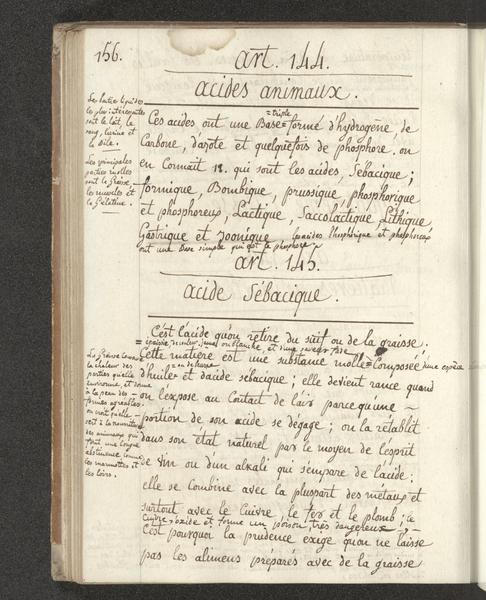 156.
art. 144.
acides animaux.
Les parties liquides
les plus intéressantes
sont le lait, le
sang, l'urine et
la Bile.
Les principales
parties molles
sont la graisse,
les muscles et
la Gélatine.
= triple
Ces acides ont une Base = formé d'hydrogène de
Carbone, d'azote et quelquefois de phosphore. on
en Connait 12. qui sont les acides, Sébacique;
formique, Bombique, prussique, phosphorique
et phosphoreux, Lactique, Saccolactique Lithique
Gastrique et zoonique les acides Phosphorique et phosphoreux
ont une Base simple qui est le phosphore
art. 145.
acide Sébacique.
C'est l'acide qu'on retire du suif ou de la graisse;
= épaisse, couleur jaune ou blanche et d'une saveur fade
Cette matière est une substance molle = Composée d'une espèce
ou de beurre
d'huile et d'acide sébacique; elle devient rance quand
on l'expose au Contact de l'air parcequ'une
portion de son acide se dégage; on la rétablit
dans son état naturel par le moyen de l'esprit
de vin ou d'un alkali qui s'empare de l'acide:
elle se Combine avec la pluspart des métaux et
surtout avec le Cuivre le fer et le plomb; le
Cuivre s'oxide et forme un poison très dangereux;
C'est pourquoi la prudence exige qu'on ne laisse
pas les alimens préparés avec de la graisse
La Graisse conserve
la chaleur des
parties qu'elle
environne, et donne
à la peau des
formes agreables.
on croit qu'elle
sert à la nourriture
des animaux qui
font une longue
abstinence, comme
les marmottes et
les loirs.